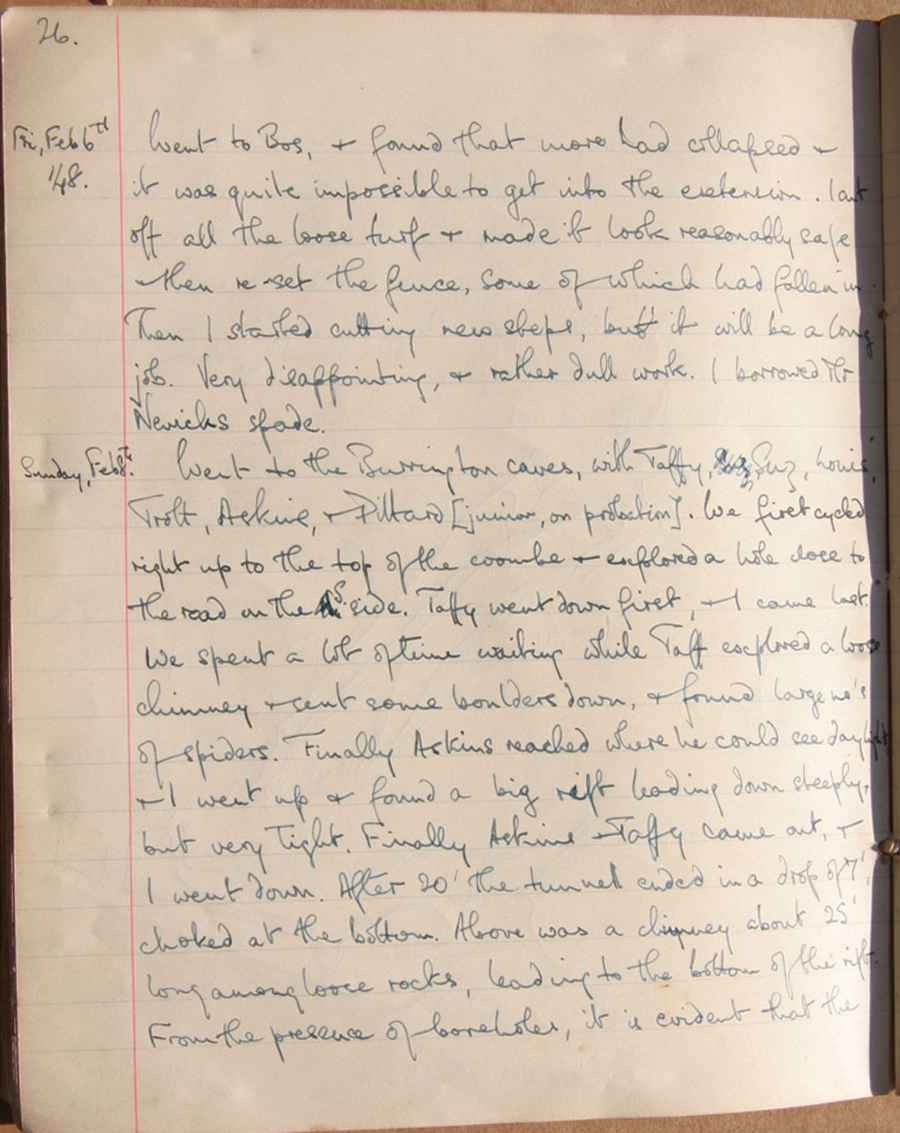 26.
Fri, Feb 6th
1948.
Went to Bos, + found that more had collapsed +
it was quite impossible to get into the extension. I cut
off all the loose turf + made it look reasonably safe
then re-set the fence, some of which had fallen in.
Then I started cutting new steps, but it will be a long
job. Very disappointing, + rather dull work. I borrowed Mr
Nevicks spade.
Sunday, Feb 8th.
Went to the Burrington caves, with Taffy, Suz,
Trott, Askins, + Pittard [junior, on probation]. We first cycled
right up to the top of the coombe + explored a hole close to
the road on the S. side. Taffy went down first, + I came last.
We spent a lot of time waiting while Taff explored a loose
chimney + sent some boulders down, + found large no's
of spiders. Finally Askins reached where he could see daylight
+ I went up + found a big rift leading down steeply,
but very tight. Finally Askins + Taffy came out, +
I went down. After 20' the tunnel ended in a drop of 7',
choked at the bottom. Above was a chimney about 25'
long among loose rocks, leading to the bottom of the rift.
From the presence of boreholes, it is evident that the